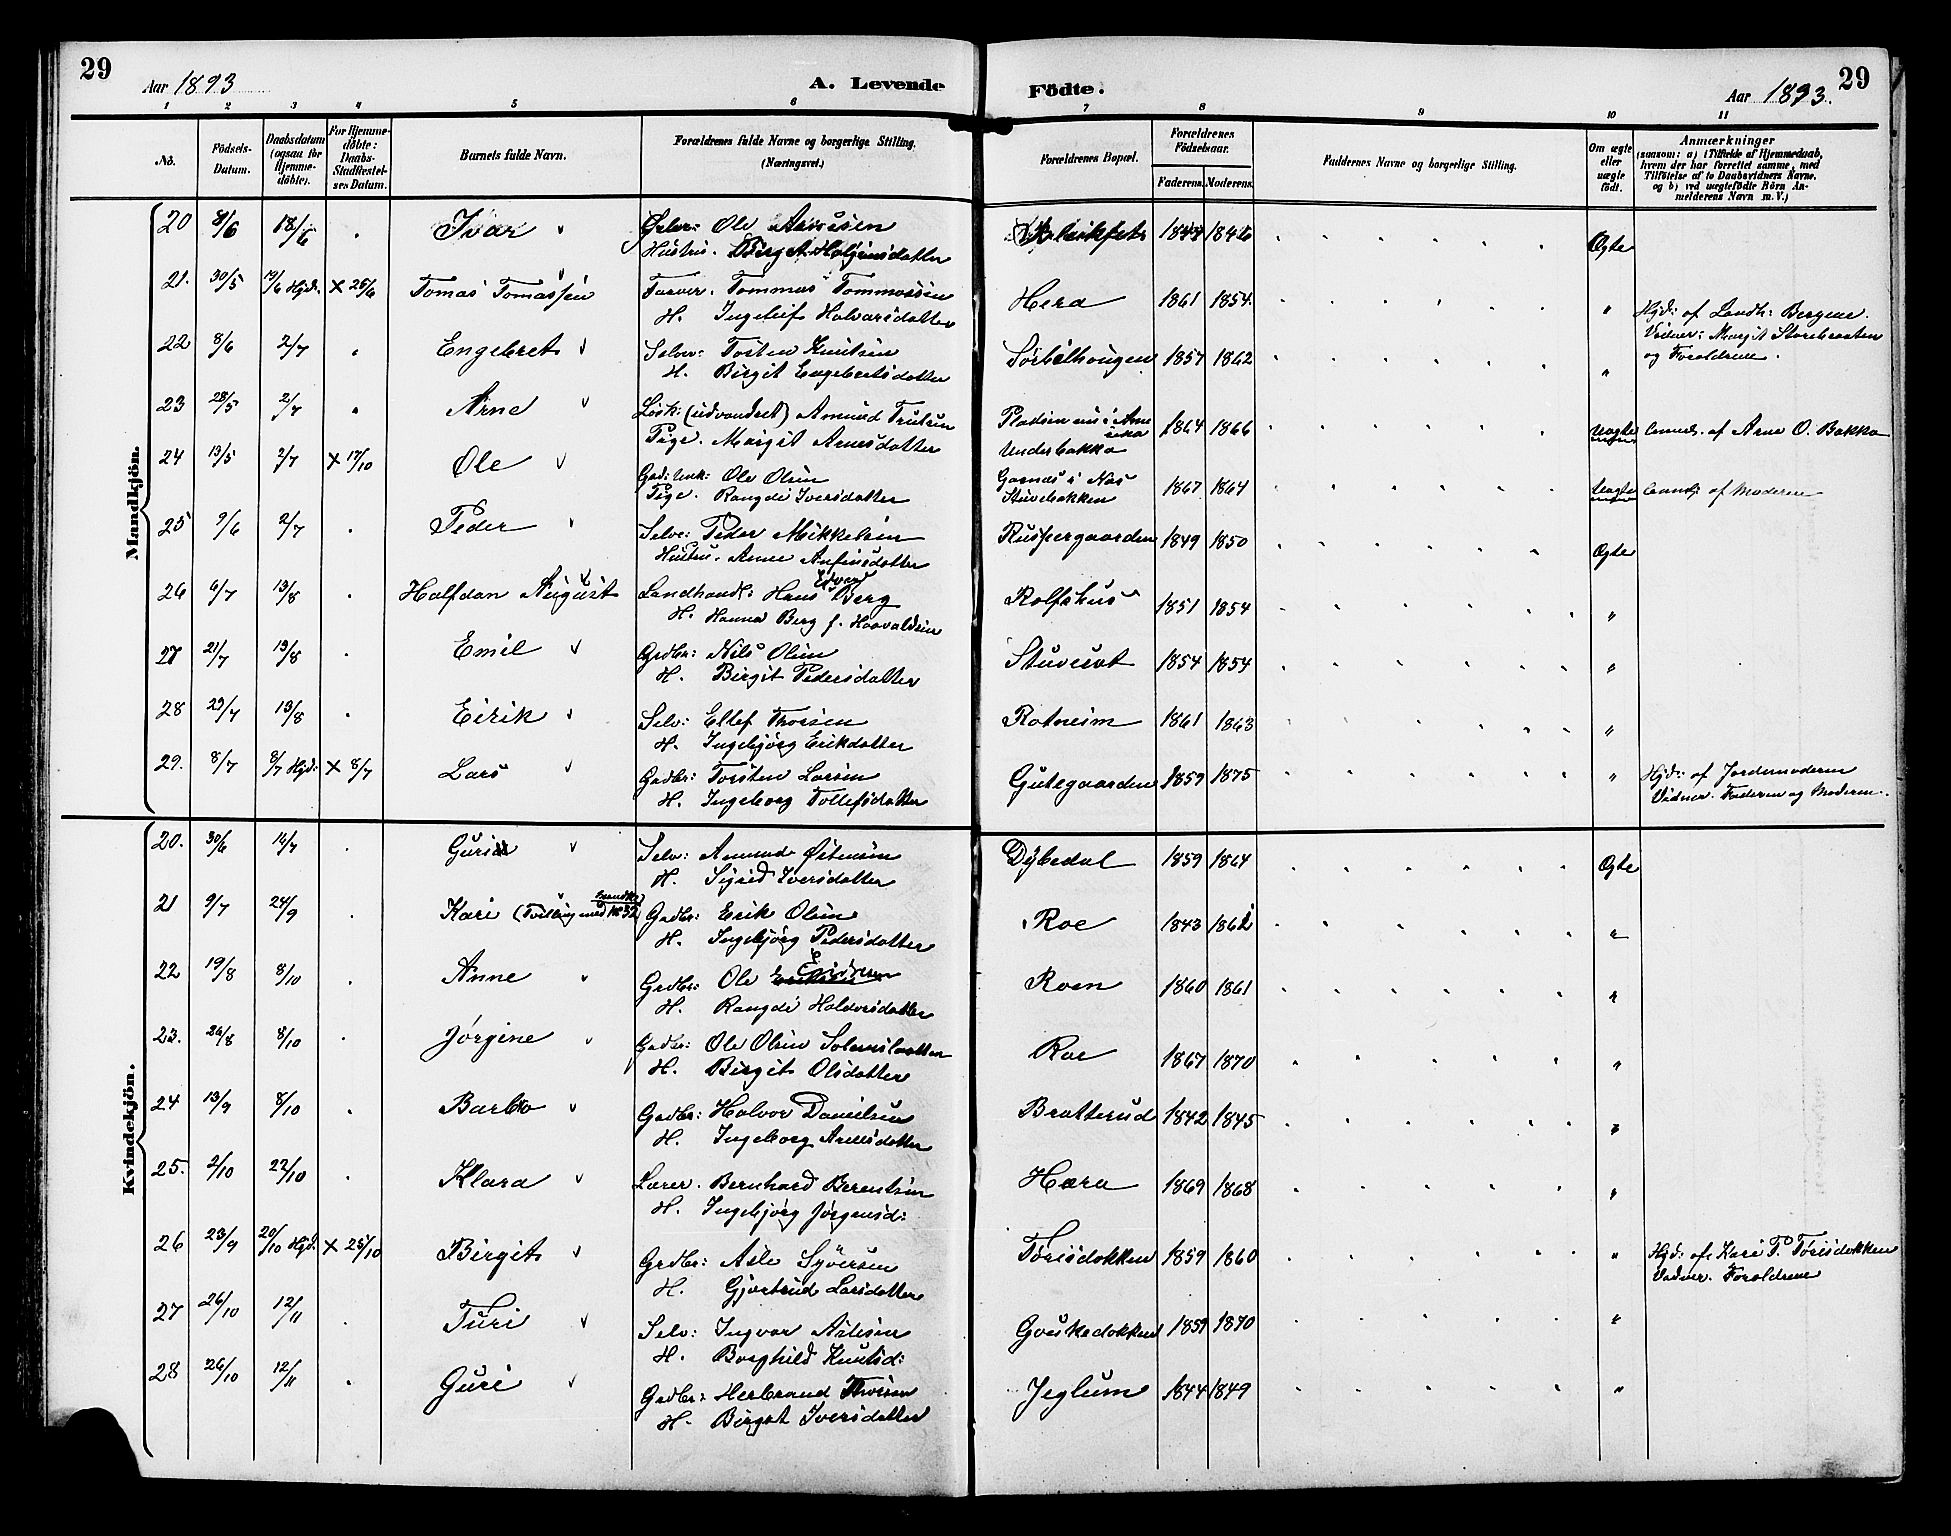 29
Aar 1893
A. Levende
Födte.
Aar 1893.
29
1 2 3 4 5 6 7 8 9 10 11
No.
Födsels-Datum.
Daabsdatum (ogsaa for Hjemme-döbte).
For Hjemme-döbte: Daabs-Stadfæstel-ses Datum.
Barnets fulde Navn.
Forældrenes fulde Navne og borgerlige Stilling. (Næringsvei.)
Forældrenes Bopæl.
Forældrenes Födselsaar.
Faderens. Moderens.
Faddernes Navne og borgerlige Stilling.
Om ægte eller uægte födt.
Anmærkninger
(saasom: a) i Tilfælde af Hjemmedaab, hvem der har forrettet samme, med Tilföielse af to Daabsvidners Navne, og b) ved uægtefödte Börn An-melderens Navn m. V.)
Mandkjön.
20 8/6 18/6 Ivar Ole 1844 1846 Ægte
Hustru. Birgit Holgeirsdatter
21. 30/5 19/6 Hjd: × 25/6 Tomas Tomassen Farver. Tommas Tommassen Hera 1861 1854.
H. Ingeleif Halvarsdatter
Hjd: af Landh: Bergene.
Vidner: Margit Storebraaten
og Forældrene.
22 8/6 2/7 Engebret Selve: Torsten Knutsen Sørbølhaugen 1857 1862 "
H. Birgit Engebretsdatter
23 28/5 2/7 Arne Løsk: (udvandret) Amund Trulsen Pladsen nu i Amerika 1864 1866 Uægte Anmeld. af Arne O. Bakko
Pige. Margit Arnesdatter Underbakko
24 13/5 2/7 × 17/10 Ole Gad: Unk: Ole Olsen Garnås i Nes 1867 1864 Uægte af Moderen
Pige. Rangdi Iversdatter Stuvebakken
25 9/6 2/7 Peder Selve: Peder Mikkelsen Ruspergaarden 1849 1850 Ægte
Hustru. Anne Anfinsdatter
26 6/7 13/8 Halfdan August Landhandl: Hans Edvard Berg Rolfshus 1851 1854 "
H. Hanna Berg f. Haavaldsen
27 21/7 13/8 Emil Grdbr: Nils Olsen 1854 1854 "
H. Birgit Pedersdatter
28 23/7 13/8 Eirik Selv: Ellef Thorsen Rotneim 1861 1863 "
H. Ingebjørg Erikdatter
29. 8/7 8/7 Hjd: × 8/7 Lars Grdbr: Torsten Larsen Gutegaarden 1859 1875 " Hjd: af Jordemoderen
H. Ingeborg Tollefsdatter Vidner. Faderen og Moderen.
Kvindekjön.
20. 30/6 16/7 Guri Selv: Amund Østensen Dybedal 1859 1864 Ægte
H. Sigrid Iversdatter
21 9/7 24/9 Kari (Tvilling med Mandkj. No 32) Grdbr: Erik Olsen Roe 1843 1862 "
H. Ingebjørg Pedersdatter
22 19/8 8/10 Anne Grdbr: Ole Roen 1860 1861 "
H. Rangdi Halvorsdatter
23. 26/8 8/10 Jørgine Grdbr: Ole Olsen Roe 1867 1870 "
H. Birgit Olsdatter
24 13/9 8/10 Barbro Grdbr: Halvor Danielsen Bratterud 1842 1845 "
H. Ingeborg Arnesdatter
25. 2/10 22/10 Klara Lærer. Bernhard Berentsen Hæra 1869 1868 "
H. Ingebjørg Jørgensd:
26 23/9 20/10 Hjd. × 25/10 Birgit Grdbr: Asle Syversen Tørisdokken 1859 1860 " Hjd: af Kari T. Tørisdokken
H. Gjertrud Larsdatter Vidner. Forældrene
27 26/10 12/11 Turi Selv: Ingvar Aslesen Gouskedokken 1859 1870 "
H. Borghild Knutsd:
28 26/10 12/11 Guri Grdbr: Herbrand Thorsen Jeglum 1844 1849 "
H. Birgit Iversdatter